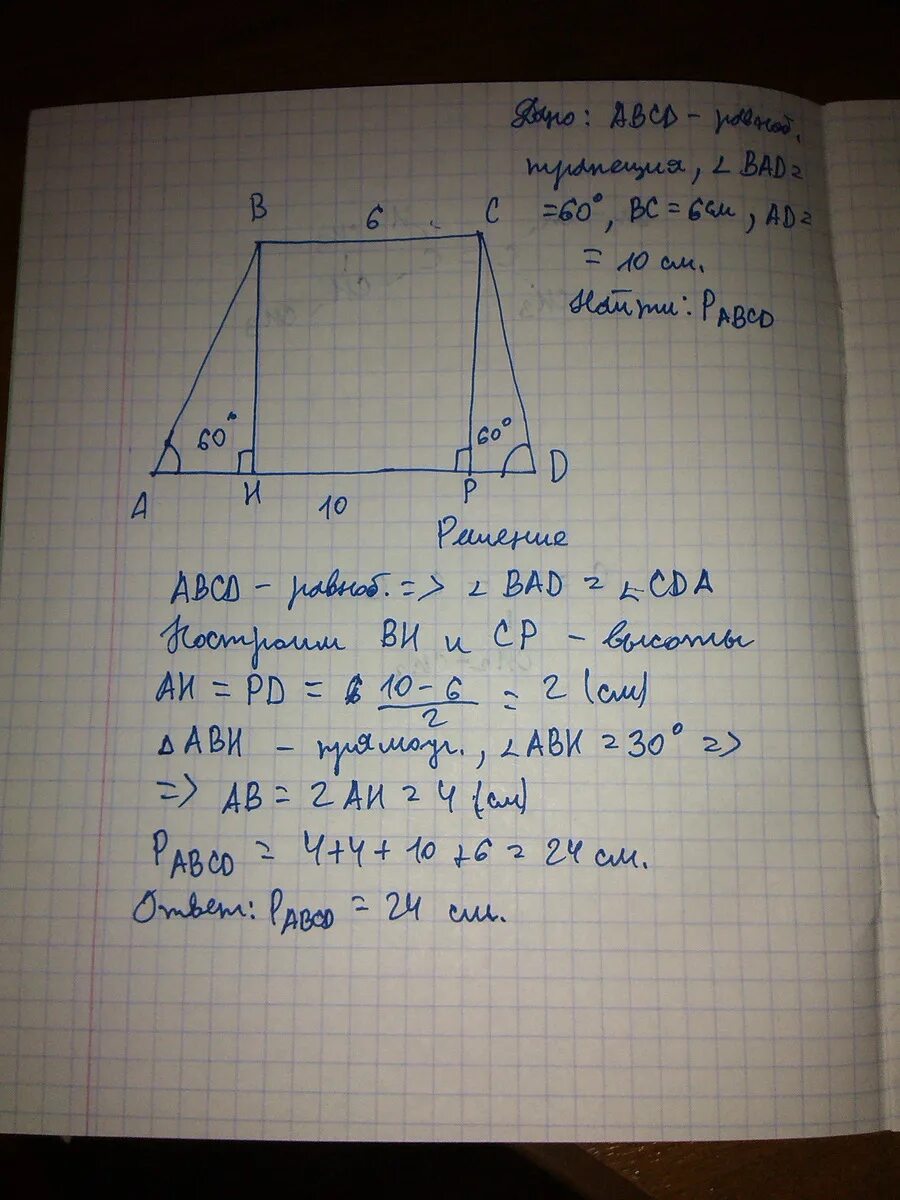 Дано: ABCD - равноб.
трапеция, ∠ BAD =
= 60°, BC = 6 см, AD =
= 10 см.
Найти: P ABCD
B 6 C
60° 60°
A H 10 P D
Решение
ABCD - равноб. => ∠ BAD = ∠ CDA
Построим BH и CP - высоты
AH = PD = 10 - 6 / 2 = 2 (см)
△ ABH - прямоуг., ∠ ABH = 30° =>
=> AB = 2 AH = 4 (см)
P ABCD = 4 + 4 + 10 + 6 = 24 см.
Ответ: P ABCD = 24 см.